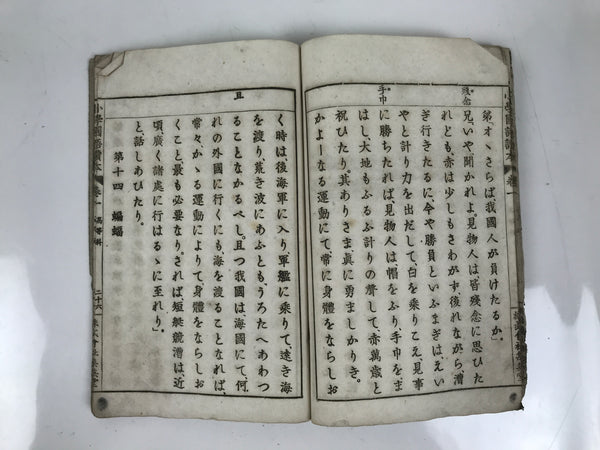 殘念
手巾
弟「オヽさらば我國人が負けたるか。」
兄「いや聞かれよ、見物人は、皆殘念に思ひた
れども、赤は少しもさわがず、後れながら漕
ぎ行きたるに、今や勝負といふまぎは、えい
やと計り力を出だして、白を乘りこえ、見事
に勝ちたれば、見物人は、帽をふり、手巾をま
はし、大地もふるふ計りの聲して、赤萬歳と
祝ひたり。其ありさま眞に勇ましかりき。
かよーなる運動にて、常に身體をならしお
且
く時は、後海軍に入り軍艦に乘りて、遠き海
を渡り、荒き波にあふとも、うろたへあわつ
ることなかるべし。且つ我國は海國にて、何
れの外國に行くにも海を渡ることなれば、
常々、かゝる運動によりて身體をならしお
くこと最も必要なり。されば短艇競漕は、近
頃、廣く諸處に行はるゝに至れり」
と、話しあひたり。
第十四 蝙蝠
小學國語讀本 卷一
二十六